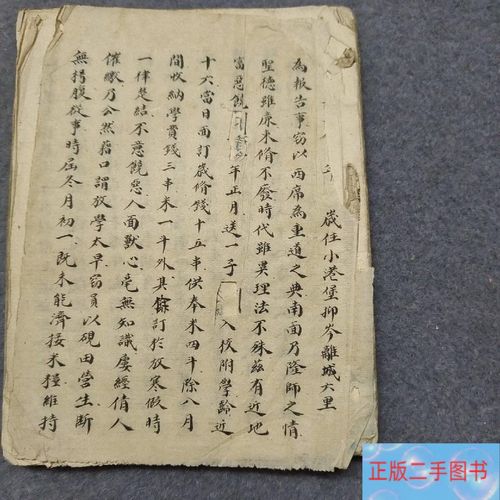 歲任小港堡抑岑離城六里
為報告事窃以西席為重道之典南面乃隆師之情
聖德雖康米脩不廢時代雖異理法不殊兹有近地
富惡饒年正月送一子入校附學齡近
十六當日面訂歲脩錢十五串供奉米四斗除八月
間收納學費錢三串米一斗外其餘訂於放寒假時
一律楚結不意饒惡人面獸心毫無知識屢經倩人
催繳乃公然藉口謂放學太早窃員以硯田營生斷
無枵腹從事時屆冬月初一既未能濟接米糧維持
正版二手图书